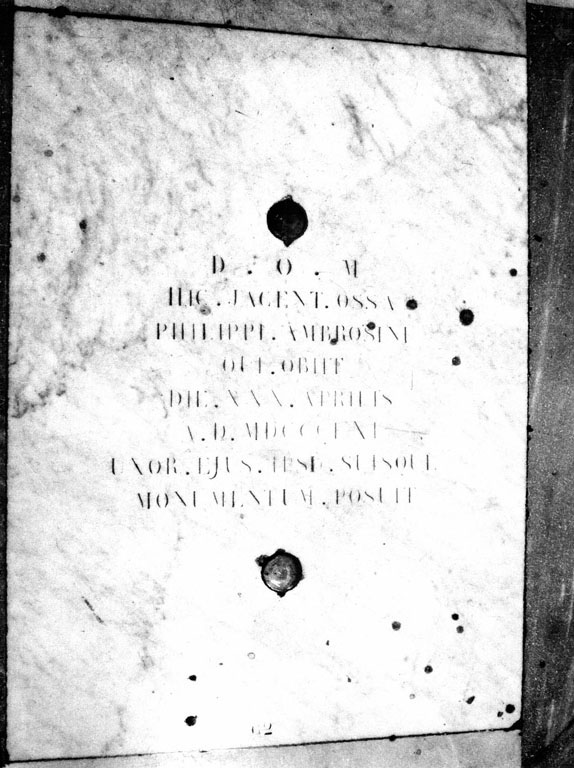 D . O . M
HIC . JACENT . OSSA
PHILIPPI . AMBROSINI
QUI . OBIIT
DIE . XXX . APRILIS
A . D .
UXOR . EJUS . IPSI . SUISQUE
MONUMENTUM . POSUIT
62